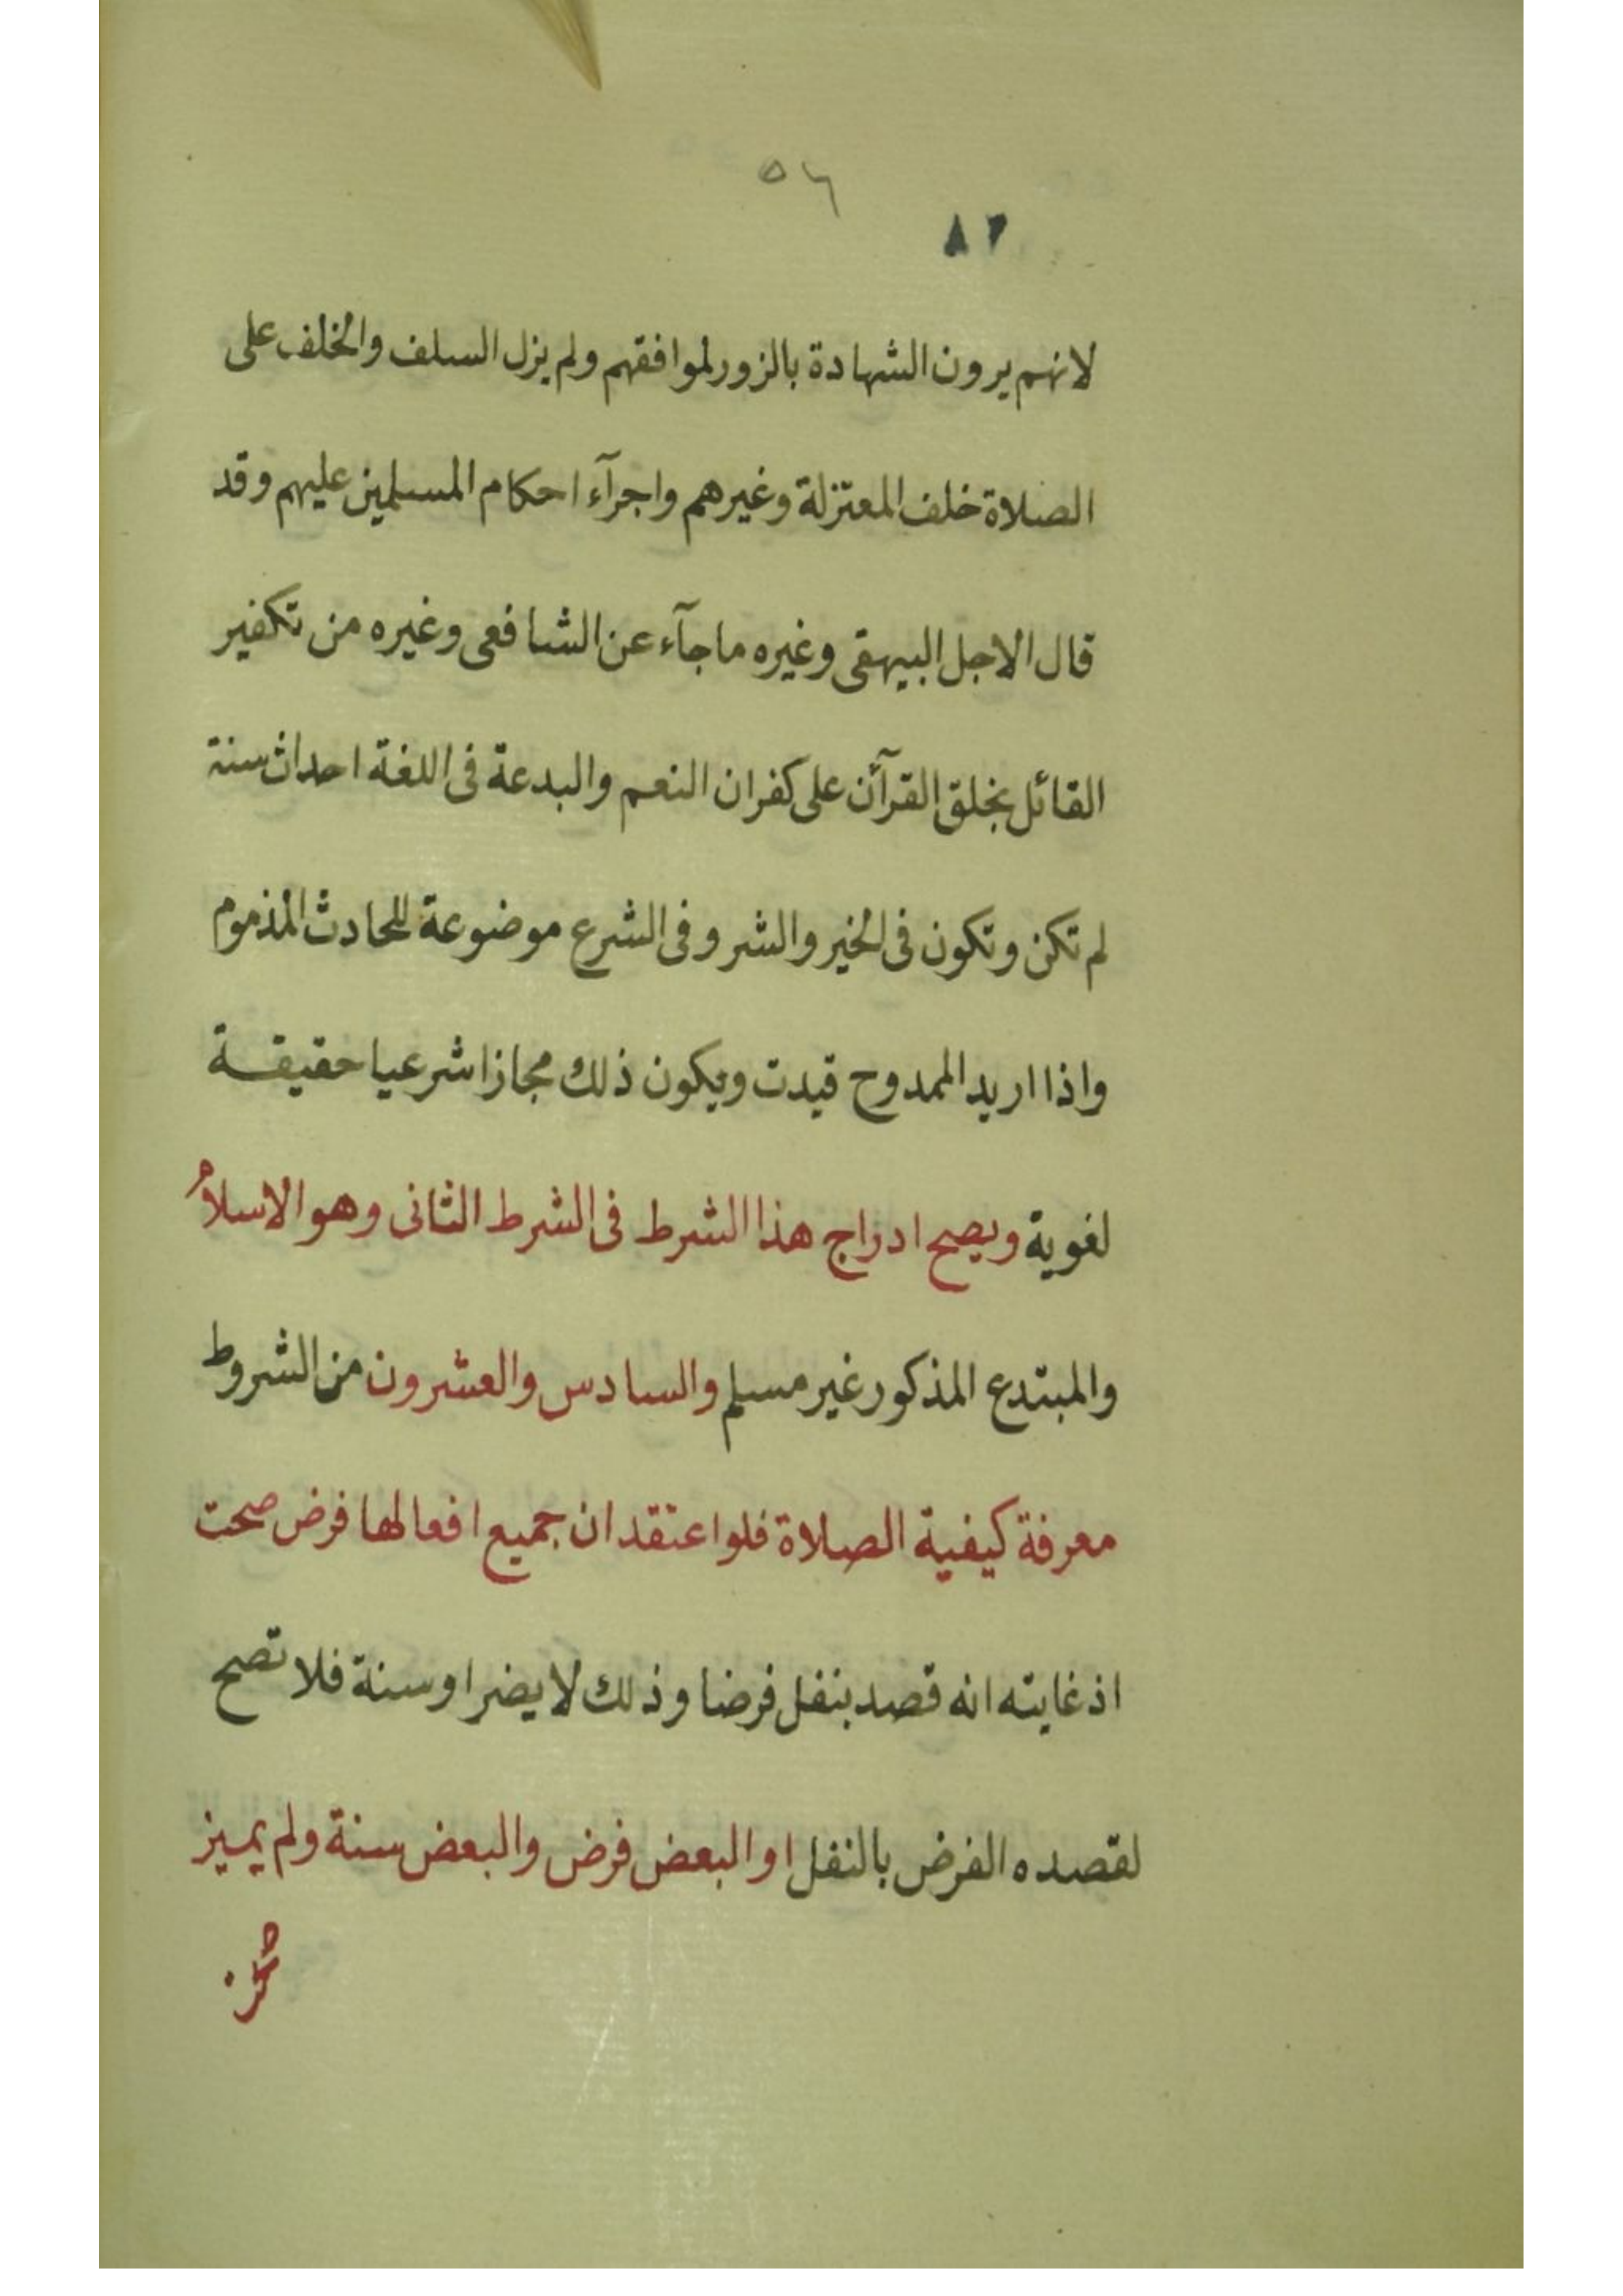 ٥٦
٨٢
لانهم يرون الشهادة بالزور لموافقهم ولم يزل السلف والخلف على
الصلاة خلف المعتزلة وغيرهم واجرآء احكام المسلمين عليهم وقد
قال الاجل البيهقى وغيره ماجآء عن الشافعى وغيره من تكفير
القائل بخلق القرآن على كفران النعم والبدعة فى اللغة احداث سنة
لم تكن وتكون فى الخير والشر وفى الشرع موضوعة للحادث المذموم
واذا اريد الممدوح قيدت ويكون ذلك مجازا شرعيا حقيقة
لغوية ويصح ادراج هذا الشرط فى الشرط الثانى وهو الاسلام
والمبتدع المذكور غير مسلم والسادس والعشرون من الشروط
معرفة كيفية الصلاة فلو اعتقد ان جميع افعالها فرض صحت
اذ غايته انه قصد بنفل فرضا وذلك لا يضر او سنة فلا تصح
لقصده الفرض بالنفل او البعض فرض والبعض سنة ولم يميز